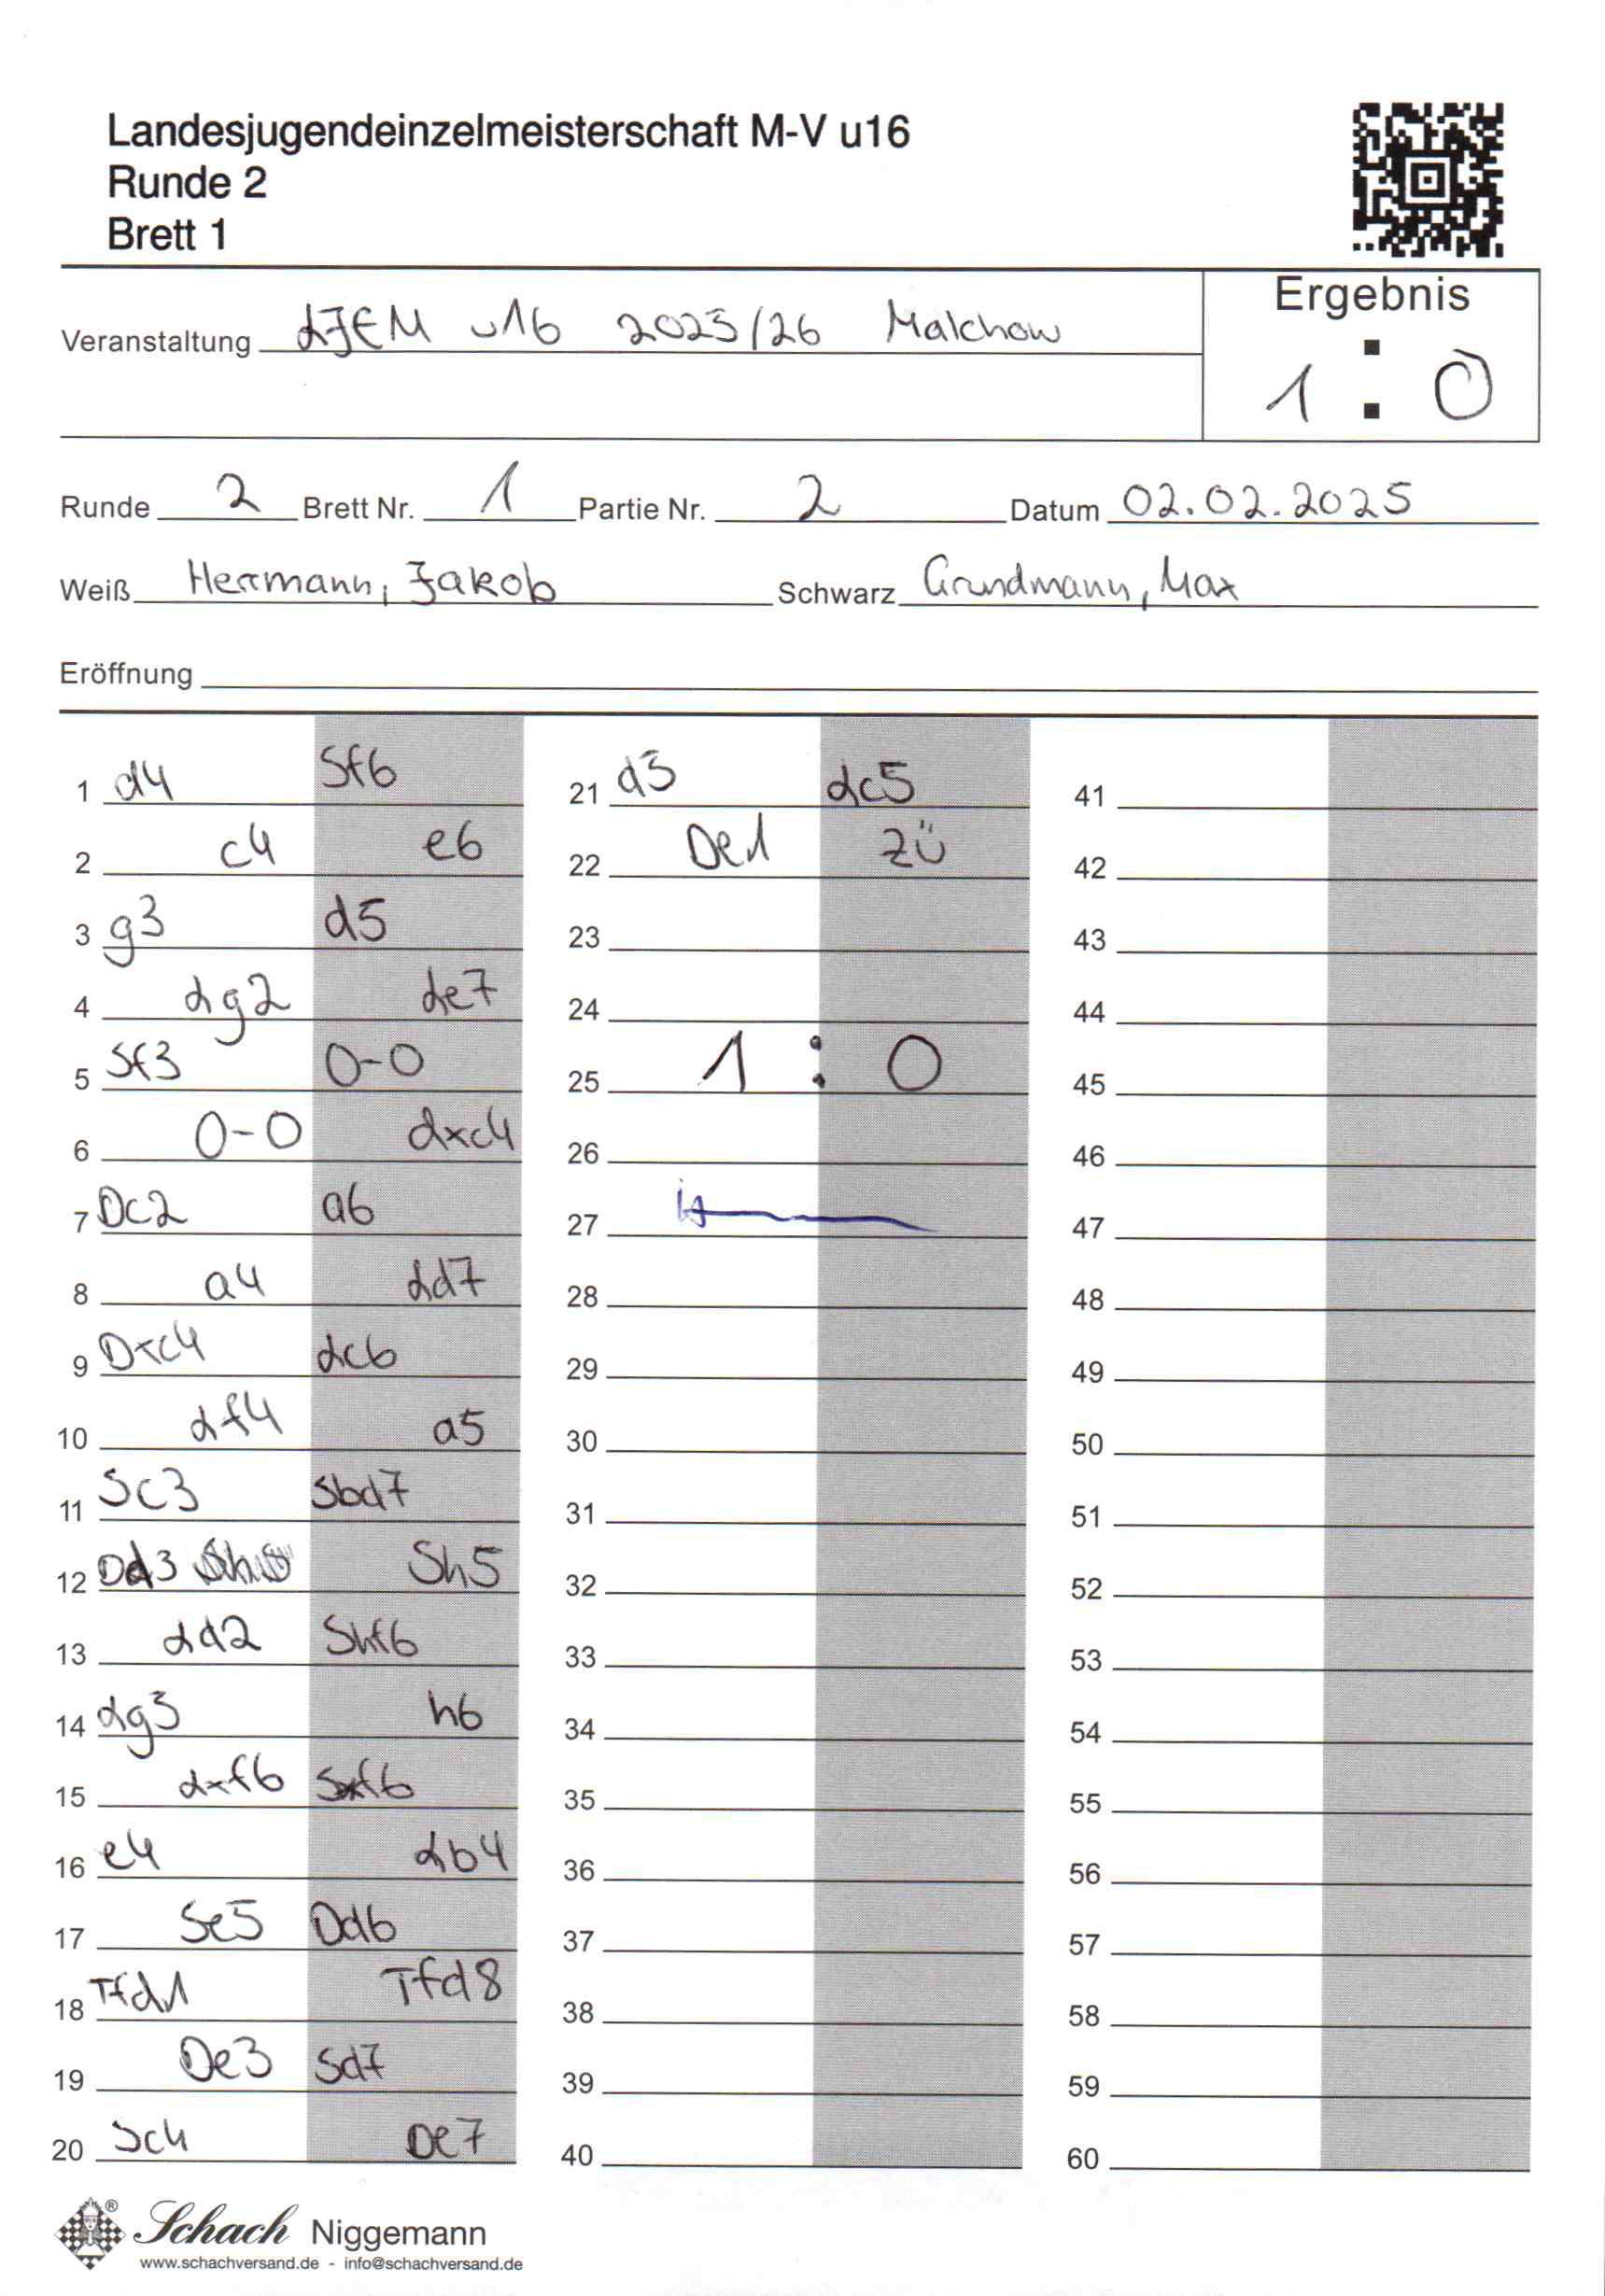 Landesjugendeinzelmeisterschaft M-V u16
Runde 2
Brett 1
Ergebnis
Veranstaltung LJEM u16 2025/26 Malchow
1 : 0
Runde 2 Brett Nr. 1 Partie Nr. 2 Datum 02.02.2025
Weiß Herrmann, Jakob Schwarz Grundmann, Max
Eröffnung
1 d4 Sf6
2 c4 e6
3 g3 d5
4 Lg2 Le7
5 Sf3 0-0
6 0-0 dxc4
7 Dc2 a6
8 a4 Ld7
9 Dxc4 Lc6
10 Lf4 a5
11 Sc3 Sbd7
12 Dd3 Sh5
13 Ld2 Shf6
14 Lg5 h6
15 Lxf6 Sxf6
16 e4 Lb4
17 Se5 Dd6
18 Tfd1 Tfd8
19 De3 Sd7
20 Sc4 De7
21 d5 Lc5
22 De1 zü
23
24
25 1 : 0
26
27
28
29
30
31
32
33
34
35
36
37
38
39
40
41
42
43
44
45
46
47
48
49
50
51
52
53
54
55
56
57
58
59
60
Schach Niggemann
www.schachversand.de - info@schachversand.de